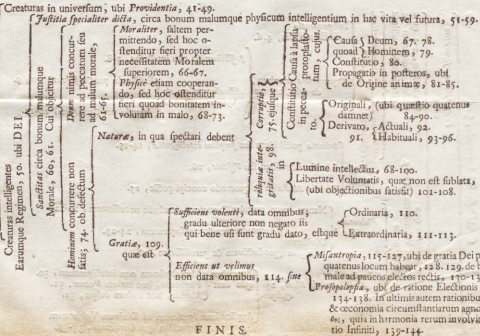 Creaturas in universum, ubi Providentia, 41-49.
Justitia specialiter dicta, circa bonum malumque physicum intelligentium in hac vita vel futura, 51-59.
Creaturas intelligentes
Earumque Regimen, 50. ubi DEI
Sanctitas circa bonum malumque
Morale, 60, 61. Cui objicitur
Deum nimis concur-
rere ad peccatum seu
ad malum morale,
61-65.
Moraliter, saltem per-
mittendo, sed hoc o-
stenditur fieri propter
necessitatem Moralem
superiorem, 66-67.
Physicè etiam cooperan-
do, sed hoc ostenditur
fieri quoad bonitatem in-
volutam in malo, 68-73.
Hominem concurrere non
satis; 74. ob defectum
Naturæ, in qua spectari debent
Corruptio,
75. ejusque
Constitutio
in pecca-
to,
Causa à lapsu
protoplasto-
rum, cujus.
Causa
quoad
Deum, 67. 78.
Hominem, 79.
Constitutio, 80.
Propagatio in posteros, ubi
de Origine animæ, 81-85.
Originali, (ubi quæstio quatenus
damnet) 84-90.
Derivato,
91.
Actuali, 92.
Habituali, 93-96.
reliquiæ inte-
gritatis, 98.
in
Lumine intellectus, 68-100.
Libertate Voluntatis, quæ non est sublata,
(ubi objectionibus satisfit) 101-108.
Gratiæ, 109.
quæ est
Sufficiens volenti, data omnibus,
gradu ulteriore non negato iis
qui bene usi sunt gradu dato, estque
Ordinaria, 110.
Extraordinaria, 111-113.
Efficiens ut velimus
non data omnibus, 114. sive
Misantropia, 115-127, ubi de gratia Dei p
quatenus locum habeat, 128. 129. de
male ad paucos electos rectis, 130-13
Prosopolepsia, ubi de ratione Electionis
134-138. In ultimis autem rationibus
& œconomia circumstantiarum agno
quia in harmonia rerum involvi
tio Infiniti, 139-144.
FINIS.